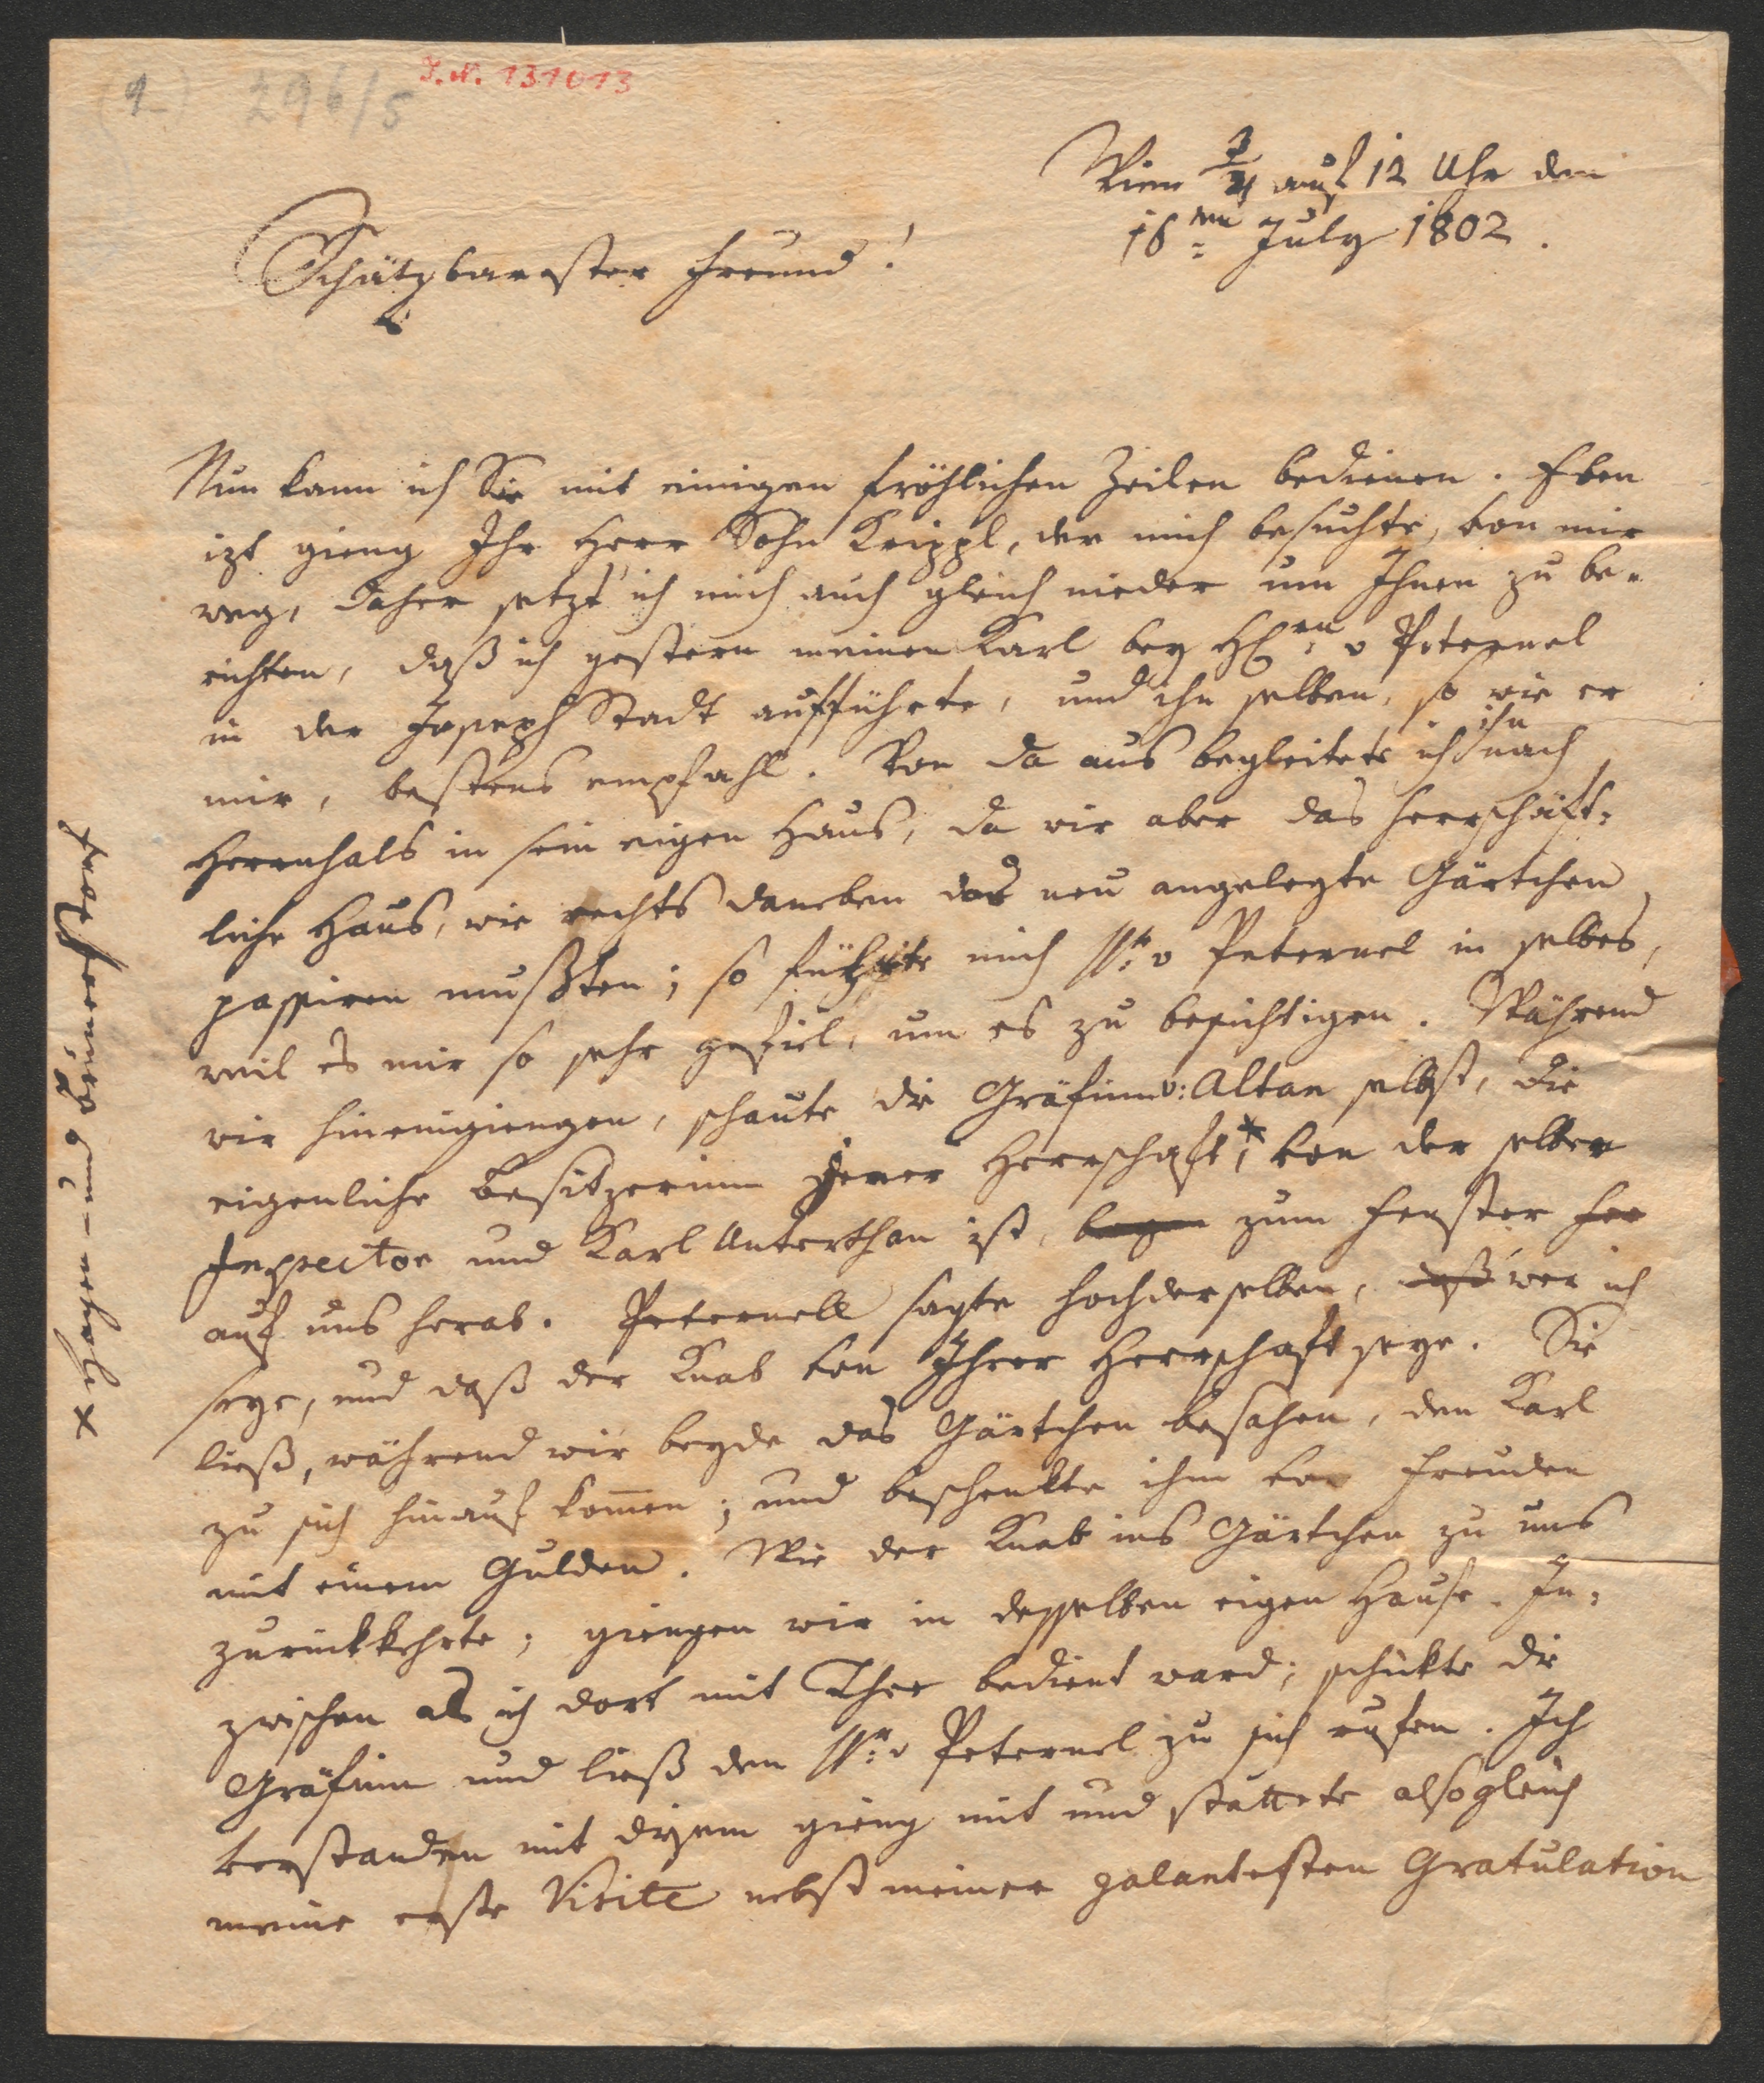 (2) 296/5
I.N. 131013
Wien 3/4 auf 12 Uhr den
16ten July 1802.
Schätzbarester Freund!
Nun kann ich Sie mit einigen fröhlichen Zeilen bedienen. Eben
izt gieng Ihr Herr Sohn Krippl, der mich besuchte, von mir
weg, daher setzt' ich mich auch gleich nieder um Ihnen zu be-
richten, daß ich gestern meinen Karl bey Hren v Peternel
in der Joseph Stadt aufführte, und ihn selben, so wie er
mir, bestens empfahl. Von da aus begleitete ich ihn nach
Herrnhals in sein eigen Haus, da wir aber das herrschäft-
liche Haus, wie rechts daneben das neu angelegte Gärtchen
passiren mußten; so führte mich Hr: v Peternel in selbes,
weil es mir so sehr gefiel, um es zu besichtigen. Während
wir hineingiengen, schaute die Gräfinn v: Altan selbst, die
eigenliche Besitzerinn jener Herrschaft,* von der selber
Inspector und Karl Unterthan ist, zum Fenster her
auf uns herab. Peternell sagte hochderselben, daß wer ich
seye, und daß der Knab von Ihrer Herrschaft seye. Sie
ließ, während wir beyde das Gärtchen besahen, den Karl
zu sich hinauf kommen; und beschenkte ihm vor Freuden
mit einem Gulden. Wie der Knab ins Gärtchen zu uns
zurückkehrte; giengen wir in desselben eigen Hause. In-
zwischen als ich dort mit Thee bedient ward; schickte die
Gräfinn und ließ den Hr: v Peternel zu sich rufen. Ich
verstanden mit diesem gieng mit und stattete alsogleich
meine erste Visite nebst meiner galantesten Gratulation
x - und